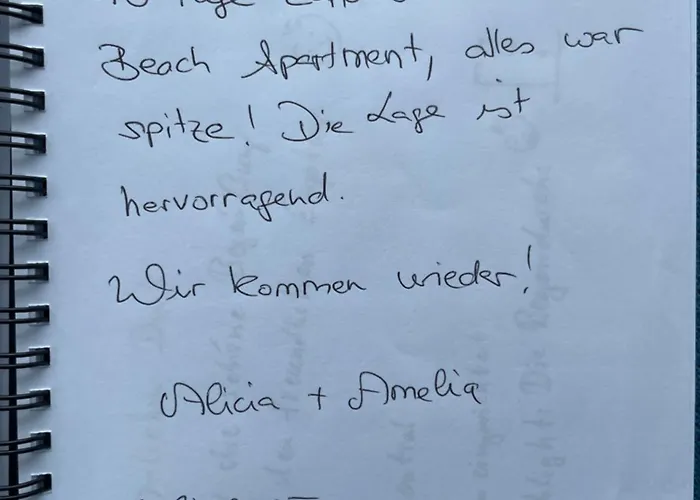 Beach Apartment, alles war
spitze! Die Lage ist
hervorragend.
Wir kommen wieder!
Alicia + Amelia